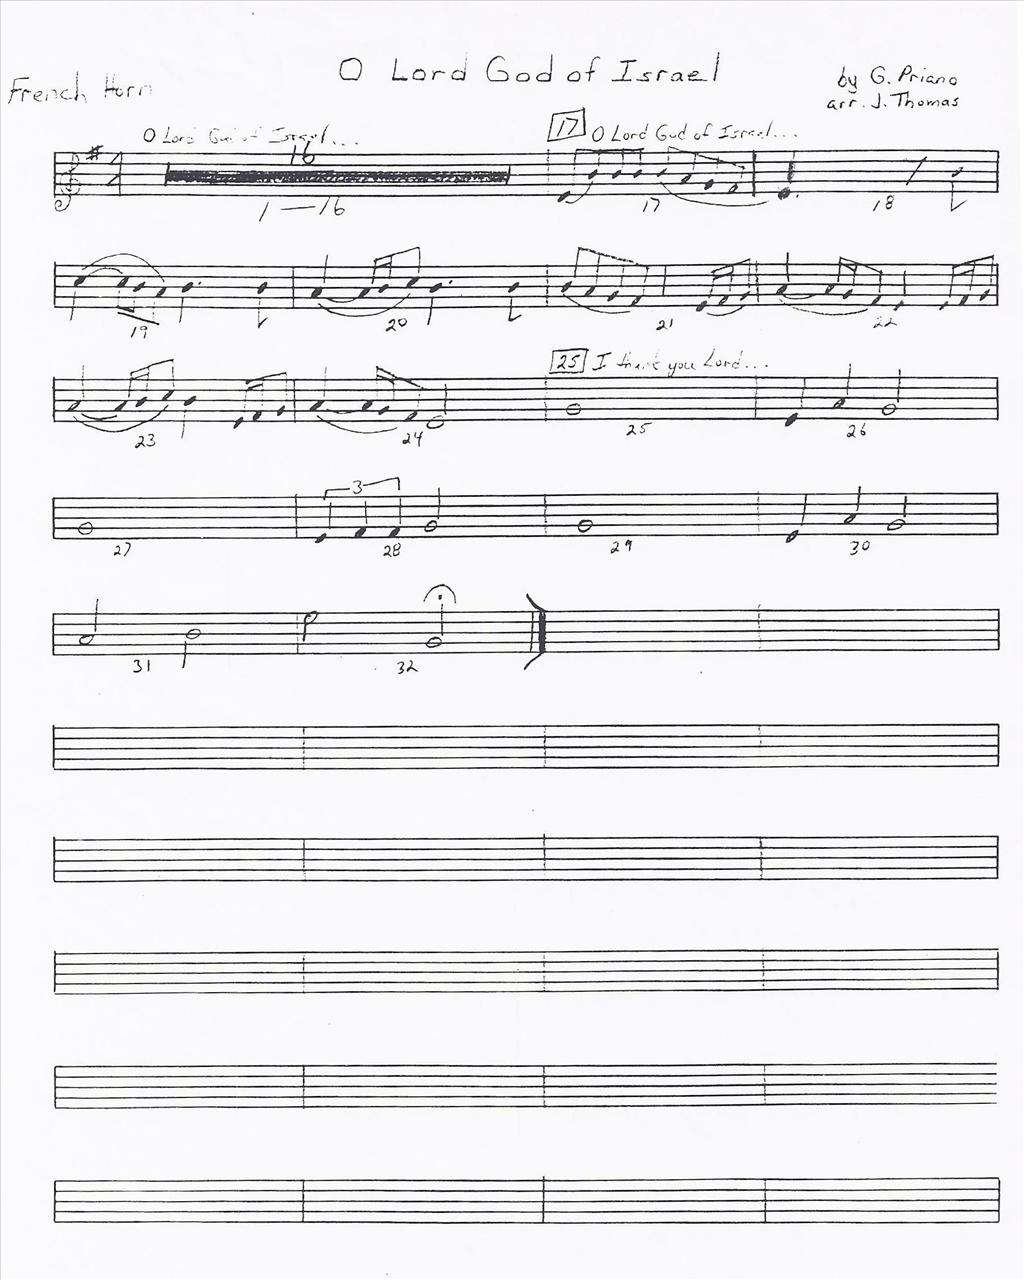 O Lord God of Israel
French Horn
by G. Priano
arr. J. Thomas
O Lord God of Israel...
17 O Lord God of Israel...
16
1 — 16 17 18
19 20 21 22
25 I thank you Lord...
23 24 25 26
3
27 28 29 30
31 32